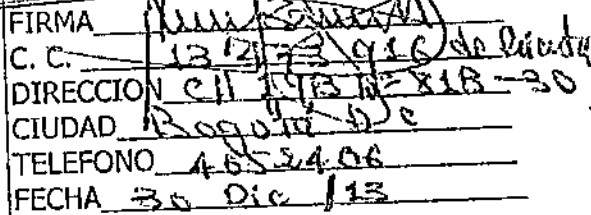 FIRMA
C. C. 13 273 916 de
DIRECCION Cll 19B Nº 81B-30
CIUDAD Bogotá D C
TELEFONO 4052406
FECHA 30 Dic /13